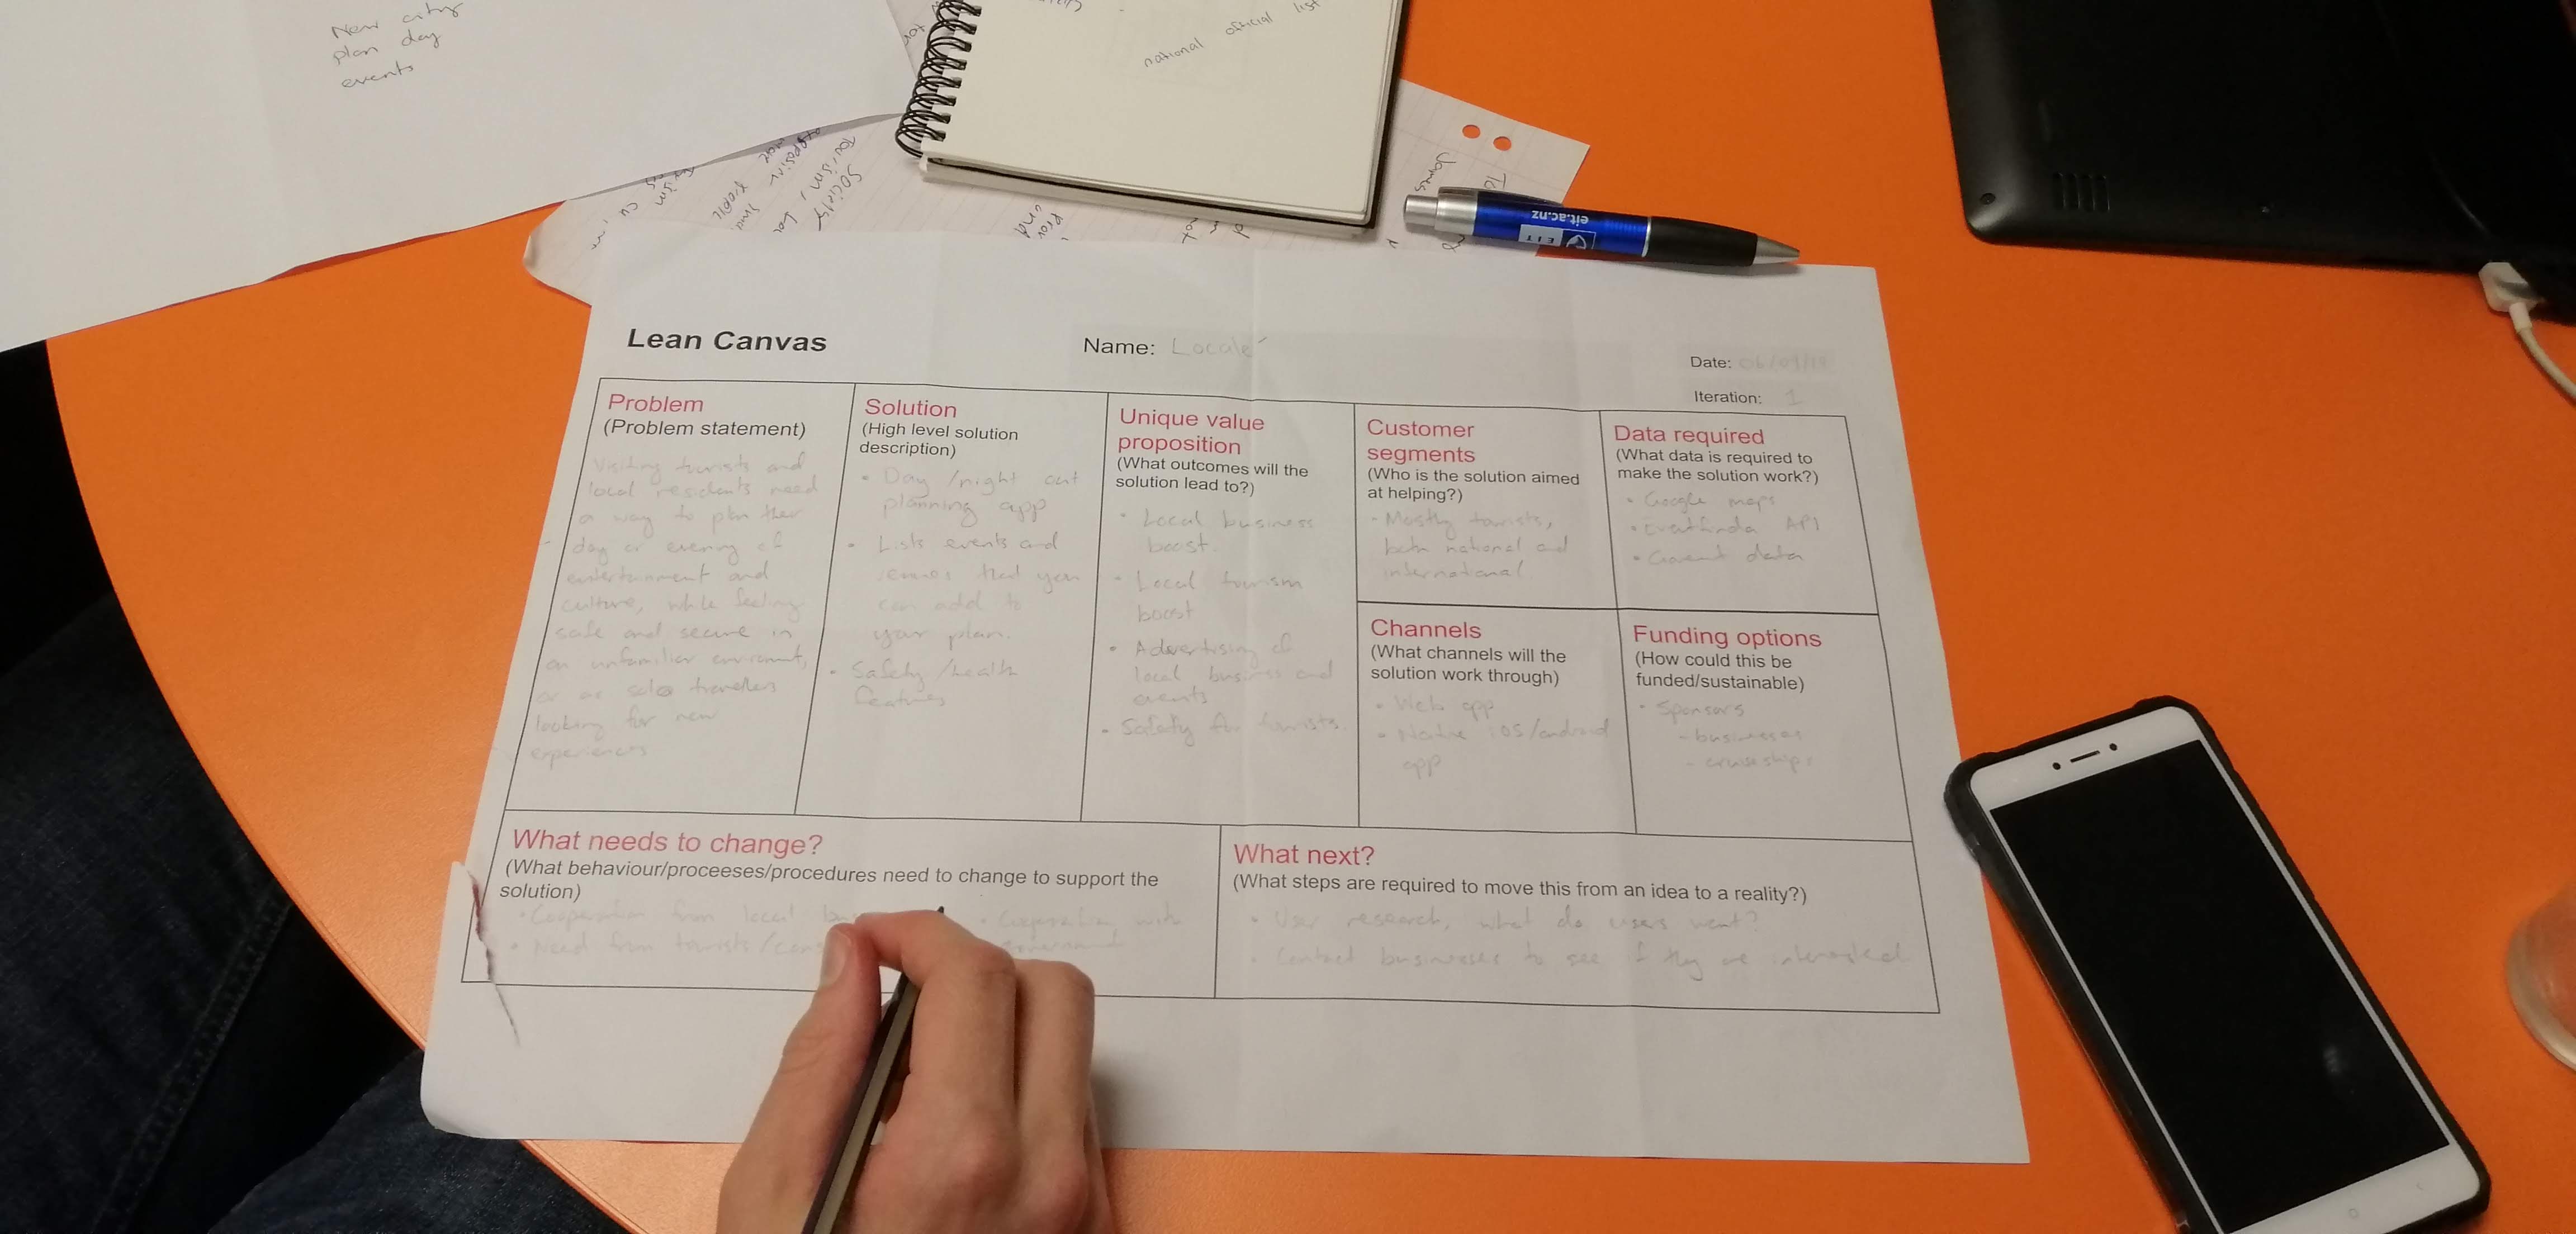 New city
plan day
events
national official list
eit.ac.nz
EIT
Lean Canvas
Name: Locale
Date:
Iteration: 1
Problem
(Problem statement)
Visiting tourists and
local residents need
a way to plan their
day or evening of
entertainment and
culture, while feeling
safe and secure in
an unfamiliar
or as solo travellers
looking for new
experiences
Solution
(High level solution
description)
• Day /night out
planning app
• Lists events and
venues that you
can add to
your plan.
• Safety /health
features
Unique value
proposition
(What outcomes will the
solution lead to?)
• Local business
boost.
• Local tourism
boost
• Advertising of
local business and
events
• Safety for tourists.
Customer
segments
(Who is the solution aimed
at helping?)
- Mostly tourists,
both national and
international
Data required
(What data is required to
make the solution work?)
• Google maps
• Eventfinda API
• data
Channels
(What channels will the
solution work through)
• Web app
• Native iOS/android
app
Funding options
(How could this be
funded/sustainable)
• Sponsors
- businesses
- cruiseships
What needs to change?
(What behaviour/proceeses/procedures need to change to support the
solution)
• Cooperation from local
• Need from tourists/
• Cooperation with
What next?
(What steps are required to move this from an idea to a reality?)
• User research, what do users want?
• Contact businesses to see if they are interested